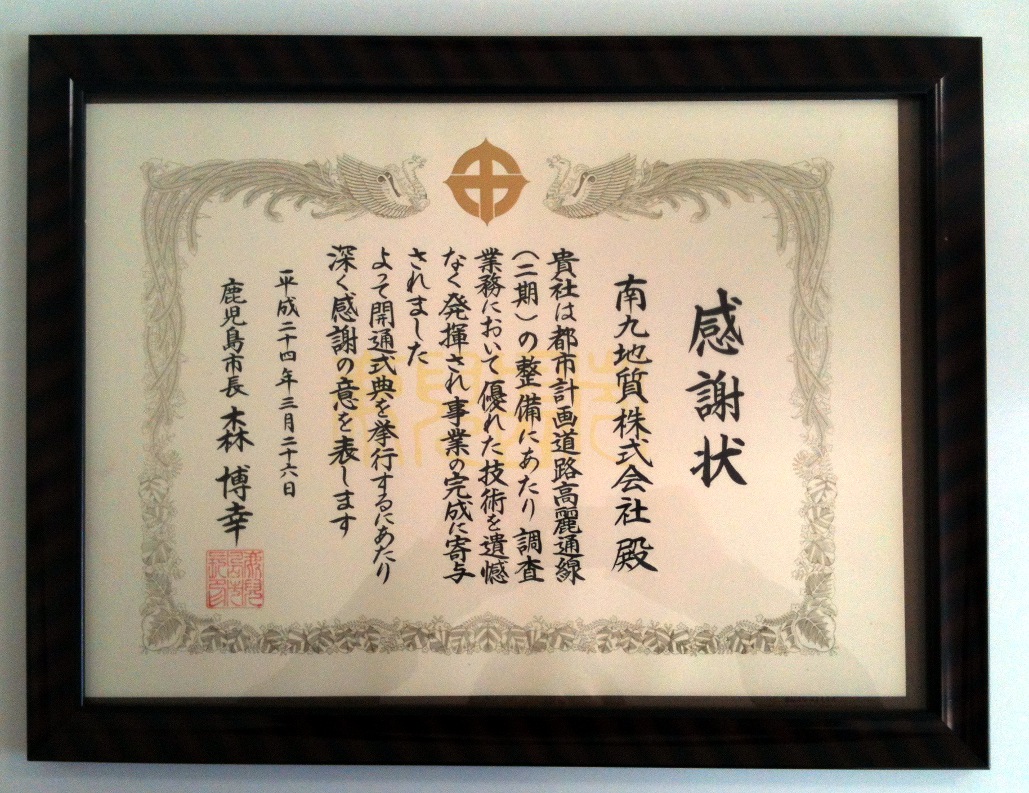 感謝状
南九地質株式会社 殿
貴社は都市計画道路高麗通線
(二期)の整備にあたり 調査
業務において優れた技術を遺憾
なく発揮され事業の完成に寄与
されました
よって開通式典を挙行するにあたり
深く感謝の意を表します
平成二十四年三月二十六日
鹿児島市長 森 博幸